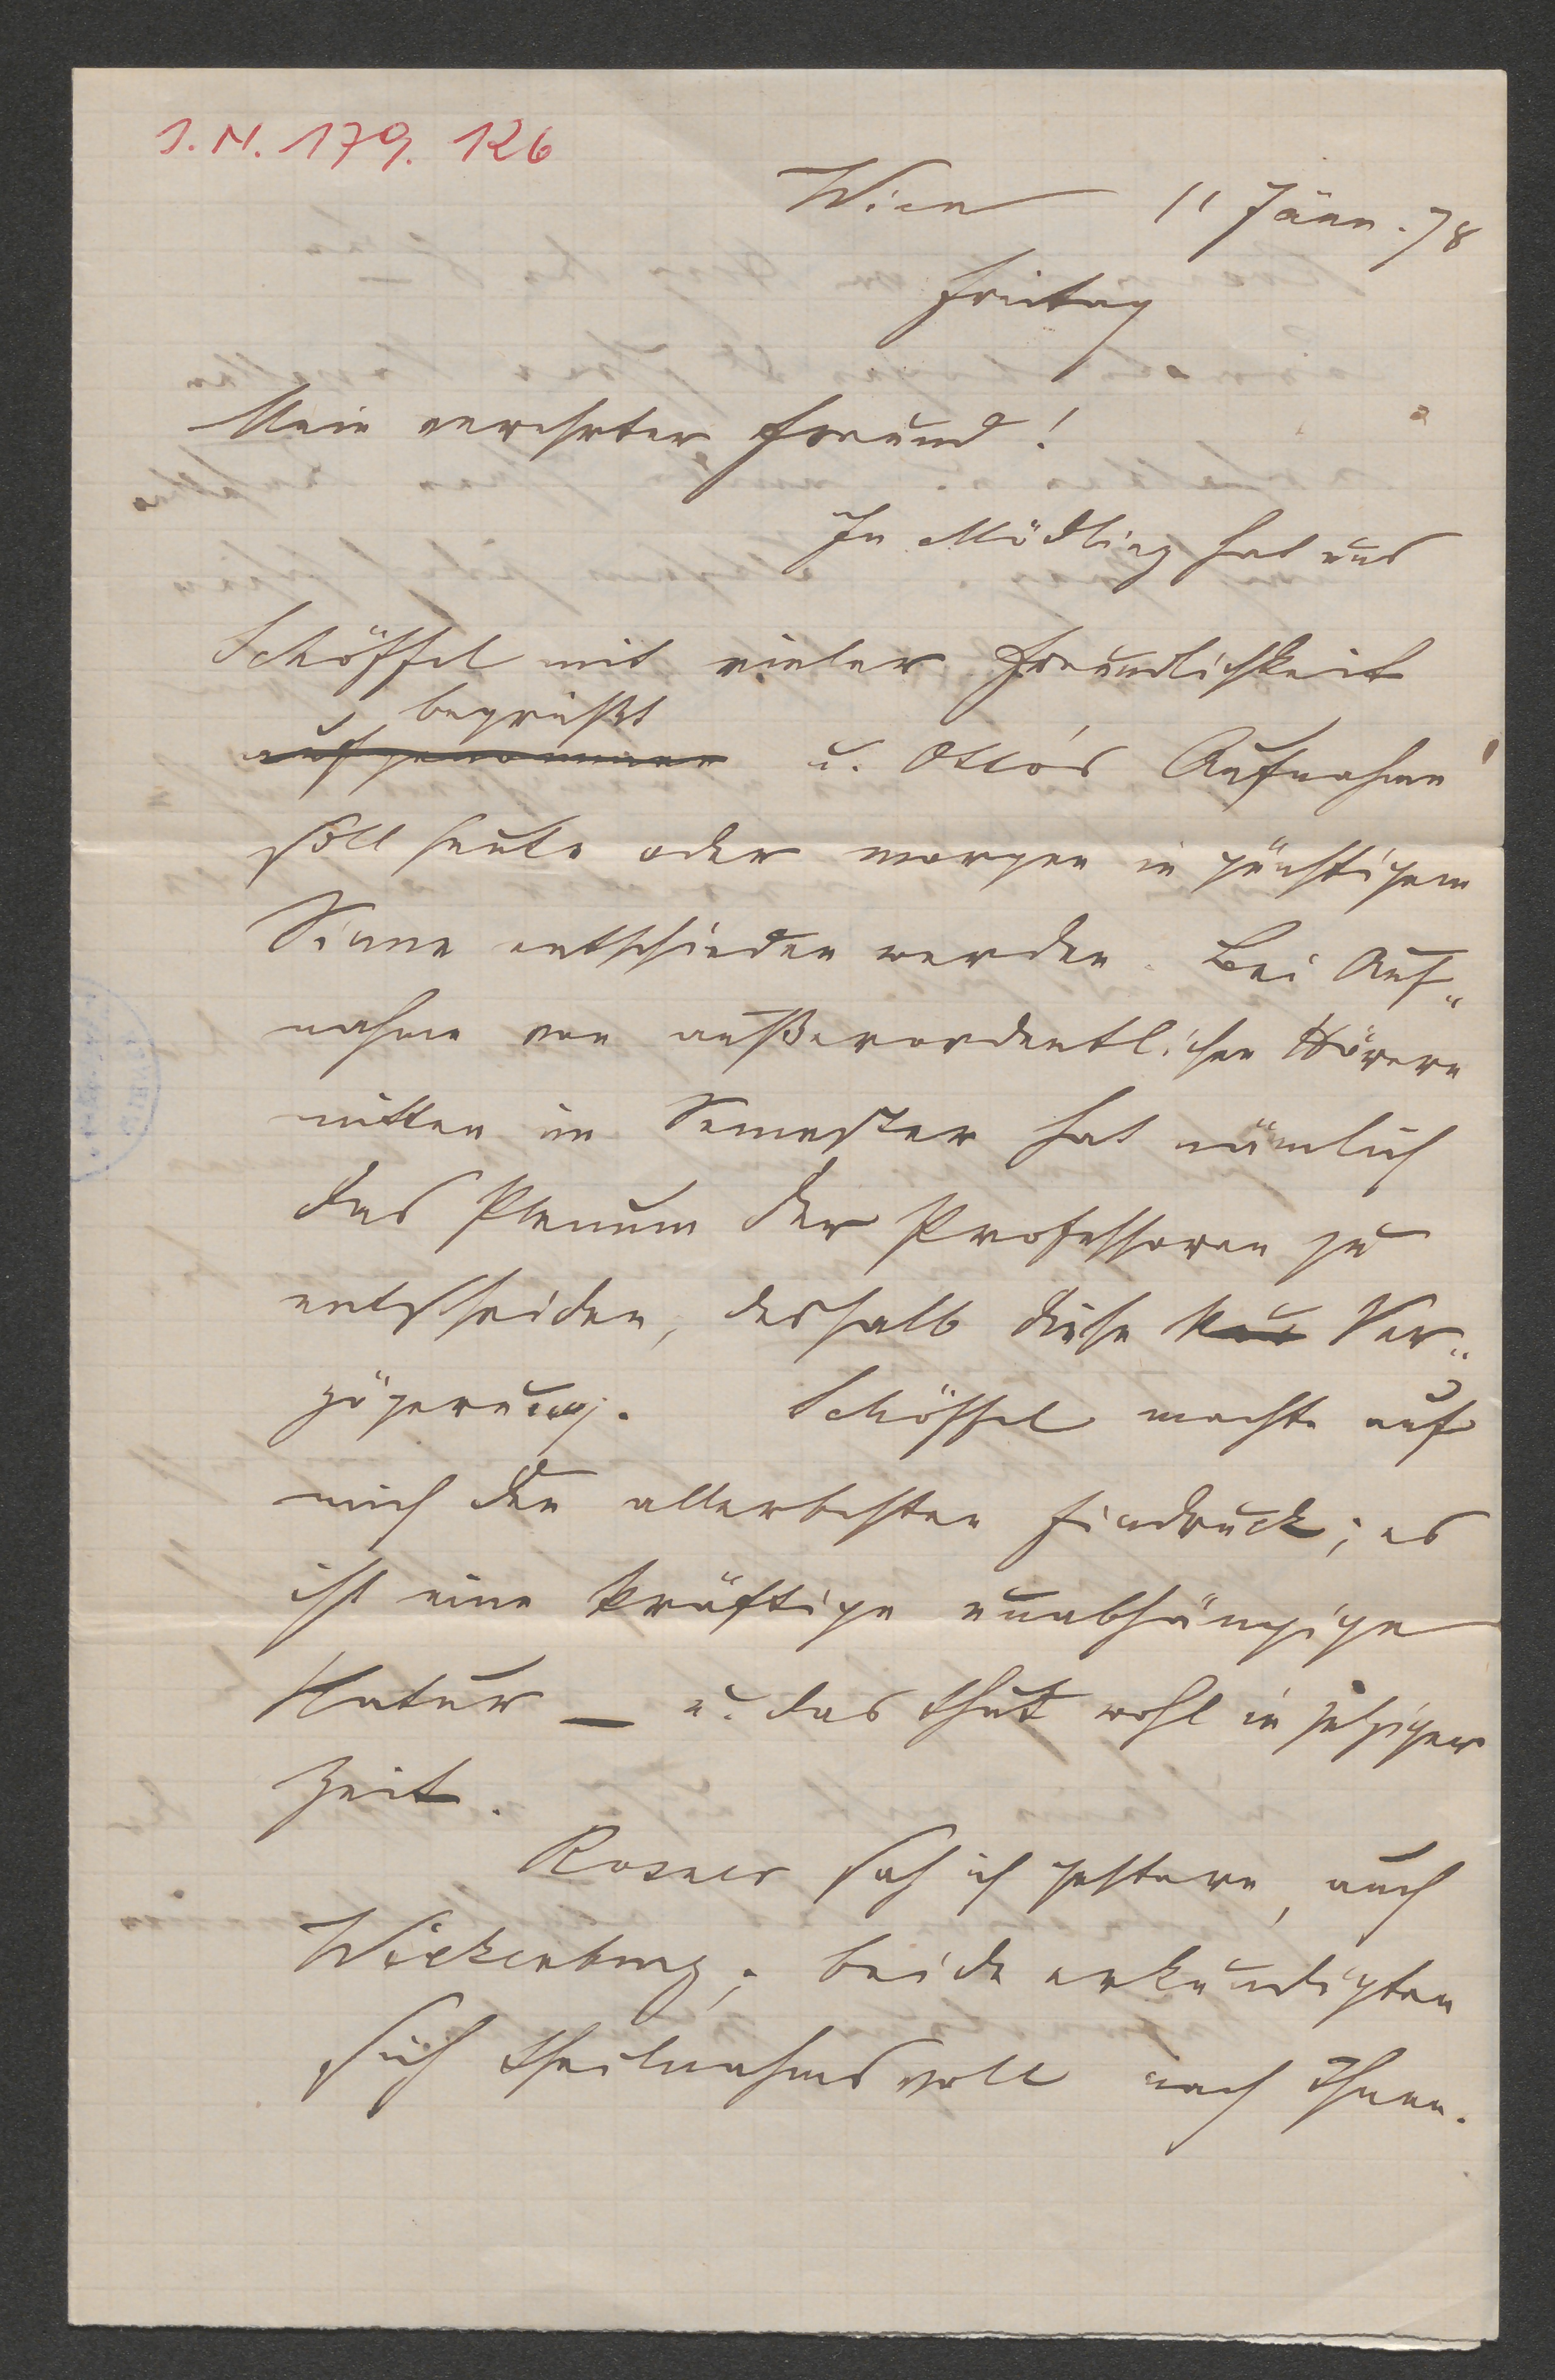 I.N. 179.126
Wien 11 Jänn. 78
Freitag
Mein verehrter Freund!
In Mödling hat uns
Schöffel mit vieler Freundlichkeit
begrüßt
aufgenommen u. Otto's Aufnahme
soll heute oder morgen in günstigem
Sinne entschieden werden. Bei Auf„
nahme von außerordentlichen Hörern
mitten im Semester hat nämlich
das Plenum der Professoren zu
entscheiden, deshalb diese Ver„
zögerung. Schöffel machte auf
mich den allerbesten Eindruck; es
ist eine kräftige unabhängige
Natur – u. das thut wohl in jetziger
Zeit.
Rosner sah ich gestern, auch
Wickenburg; beide erkundigten
sich theilnahmsvoll nach Ihnen.